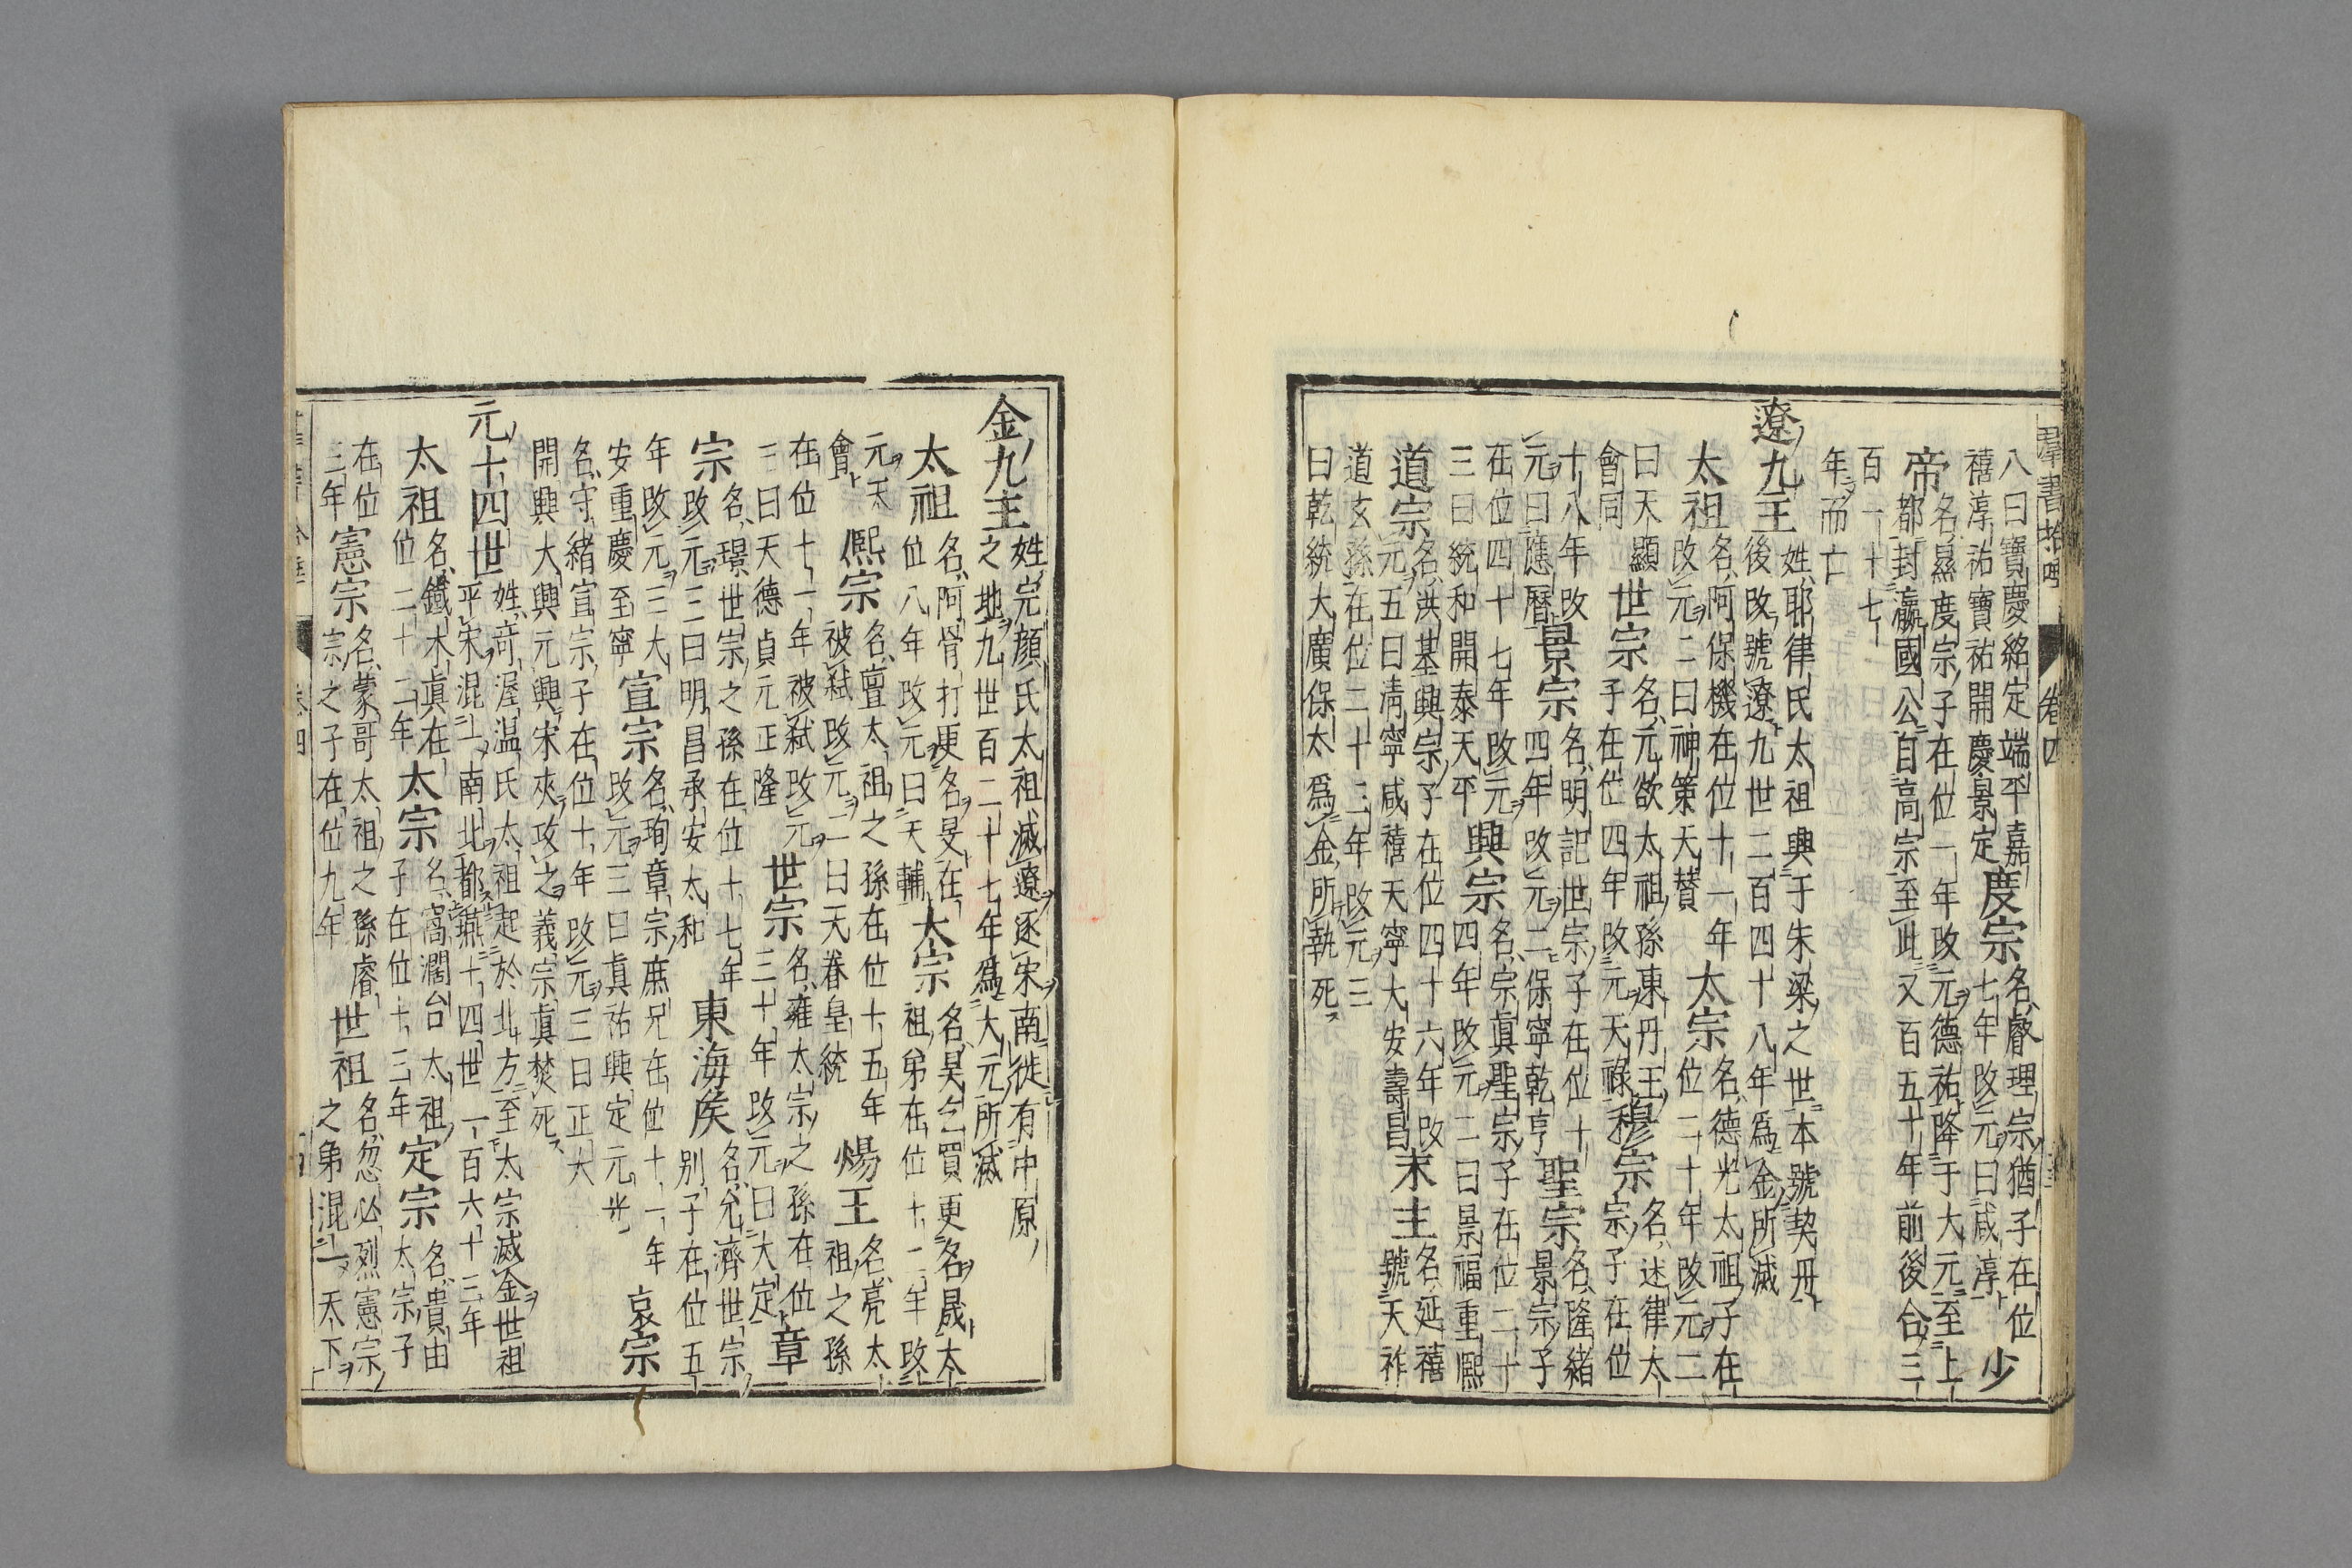 羣書拾唾 卷四
八曰寶慶紹定端平嘉
禧淳祐寶祐開慶景定
度宗
名、叡理宗猶子在位
七年改元曰咸淳
少
帝
名、㬎度宗子在位一年改元德祐降于大元至上
都封瀛國公自高宗至此又百五十年前後合三
百一十七
年而亡
遼九主
姓、耶律氏太祖興于朱梁之世本號契丹
後改號遼九世二百四十八年爲金所滅
太祖
名、阿保機在位十一年
改元二曰神策天賛
太宗
名、德光太祖子在
位二十年改元二
曰天顯
會同
世宗
名、元欲太祖孫東丹王
子在位四年改元天祿
穆宗
名、述律太
宗子在位
十八年改
元曰應曆
景宗
名、明記世宗子在位十
四年改元二保寧乾亨
聖宗
名、隆緒
景宗子
在位四十七年改元
三曰統和開泰天平
興宗
名、宗眞聖宗子在位二十
四年改元二曰景福重熈
道宗
名、洪基興宗子在位四十六年改
元五曰淸寧咸禧天寧大安壽昌
末主
名、延禧
號天祚
道玄孫在位二十三年改元三
曰乾統大廣保太爲金所執死
金九主
姓、完顏氏太祖滅遼逐宋南徙有中原
之地九世百二十七年爲大元所滅
太祖
名、阿骨打更名旻在
位八年改元曰天輔
太宗
名、昊乞買更名晟太
祖弟在位十二年改
元天
會
熈宗
名、亶太祖之孫在位十五年
被弑改元二曰天眷皇統
煬王
名、亮太
祖之孫
在位十一年被弑改元
三曰天德貞元正隆
世宗
名、雍太宗之孫在位
三十年改元曰大定
章
宗
名、璟世宗之孫在位十七年
改元三曰明昌承安太和
東海侯
名、允濟世宗
別子在位五
年改元三大
安重慶至寧
宣宗
名、珣章宗庶兄在位十一年
改元三曰眞祐興定元光
哀宗
名、守緒宣宗子在位十年改元三曰正大
開興大興元興宋夾攻之義宗眞焚死
元十四世
姓、奇渥温氏太祖起於北方至太宗滅金世祖
平宋混一南北都燕十四世一百六十三年
太祖
名、鐵木眞在
位二十二年
太宗
名、窩濶台太祖
子在位十三年
定宗
名、貴由
太宗子
在位
三年
憲宗
名、蒙哥太祖之孫睿
宗之子在位九年
世祖
名、忽必烈憲宗
之弟混一天下